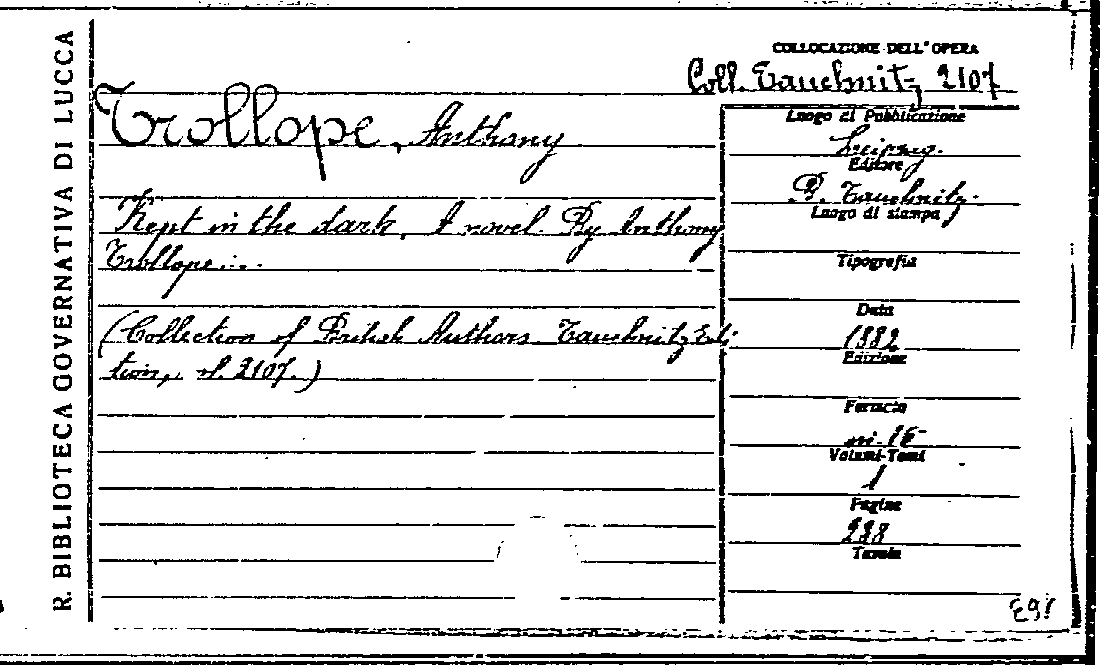 R. BIBLIOTECA GOVERNATIVA DI LUCCA
COLLOCAZIONE DELL'OPERA
Coll. Tauchnitz 2107
Trollope, Anthony
Kept in the dark, A novel. By Anthony
Trollope....
(Collection of British Authors. Tauchnitz Edi-
tion, vl. 2107.)
Luogo di Pubblicazione
Leipzig.
Editore
B. Tauchnitz.
Luogo di stampa
Tipografia
Data
1882
Edizione
Formato
in-16
Volumi-Tomi
1
Pagine
288
Tavole